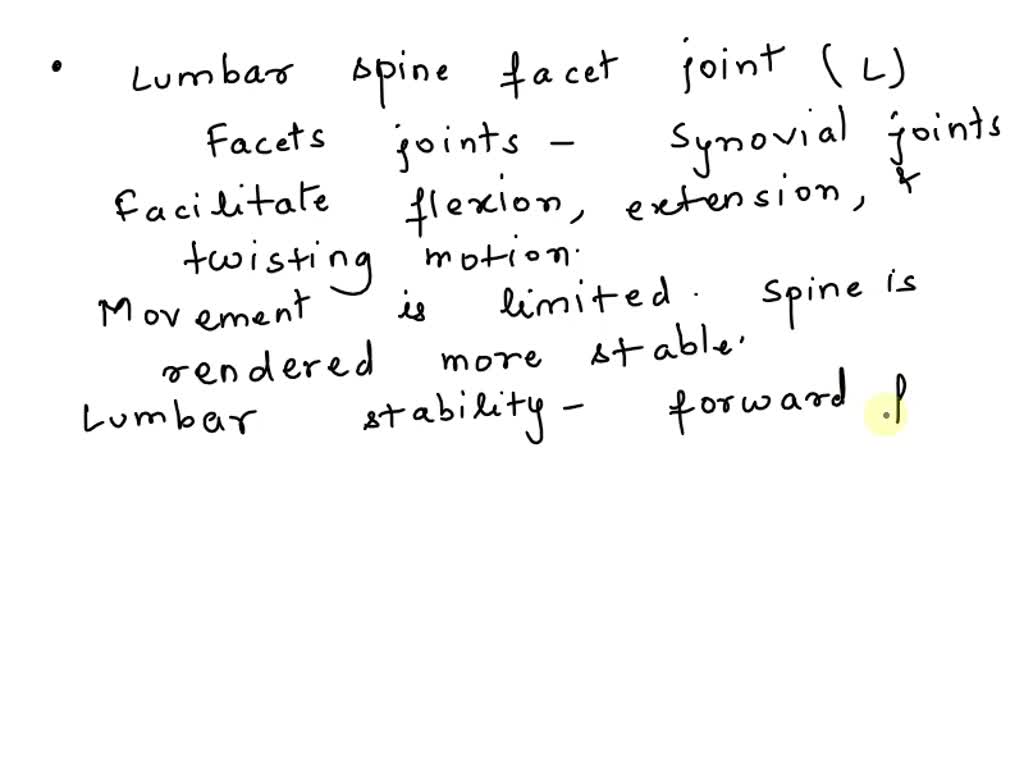 • Lumbar spine facet joint (L)
Facets joints - Synovial joints
Facilitate flexion, extension, &
twisting motion.
Movement is limited. Spine is
rendered more stable.
Lumbar stability - forward